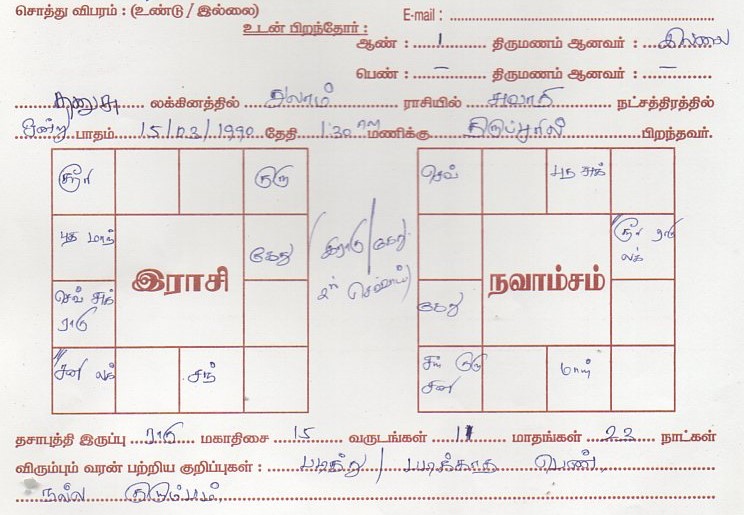 சொத்து விபரம் : (உண்டு / இல்லை)
E-mail :
உடன் பிறந்தோர் :
ஆண் : 1 திருமணம் ஆனவர் : இல்லை
பெண் : – திருமணம் ஆனவர் : –
தனுசு லக்கினத்தில் துலாம் ராசியில் சுவாதி நட்சத்திரத்தில்
ஒன்று பாதம் 15/03/1990 தேதி 1:30 am மணிக்கு பிறந்தவர்.
சூரி குரு
புத மாந் கேது
செவ் சுக் ராகு
சனி லக் சந்
இராசி
(இராகு/கேது
செவ்வாய்)
செவ் புத சுக்
சூரி ராகு லக்
கேது
சந் குரு சனி மாந்
நவாம்சம்
தசாபுத்தி இருப்பு ராகு மகாதிசை 15 வருடங்கள் 11 மாதங்கள் 23 நாட்கள்
விரும்பும் வரன் பற்றிய குறிப்புகள் : படித்த / படிக்காத பெண்.
நல்ல குடும்பம்